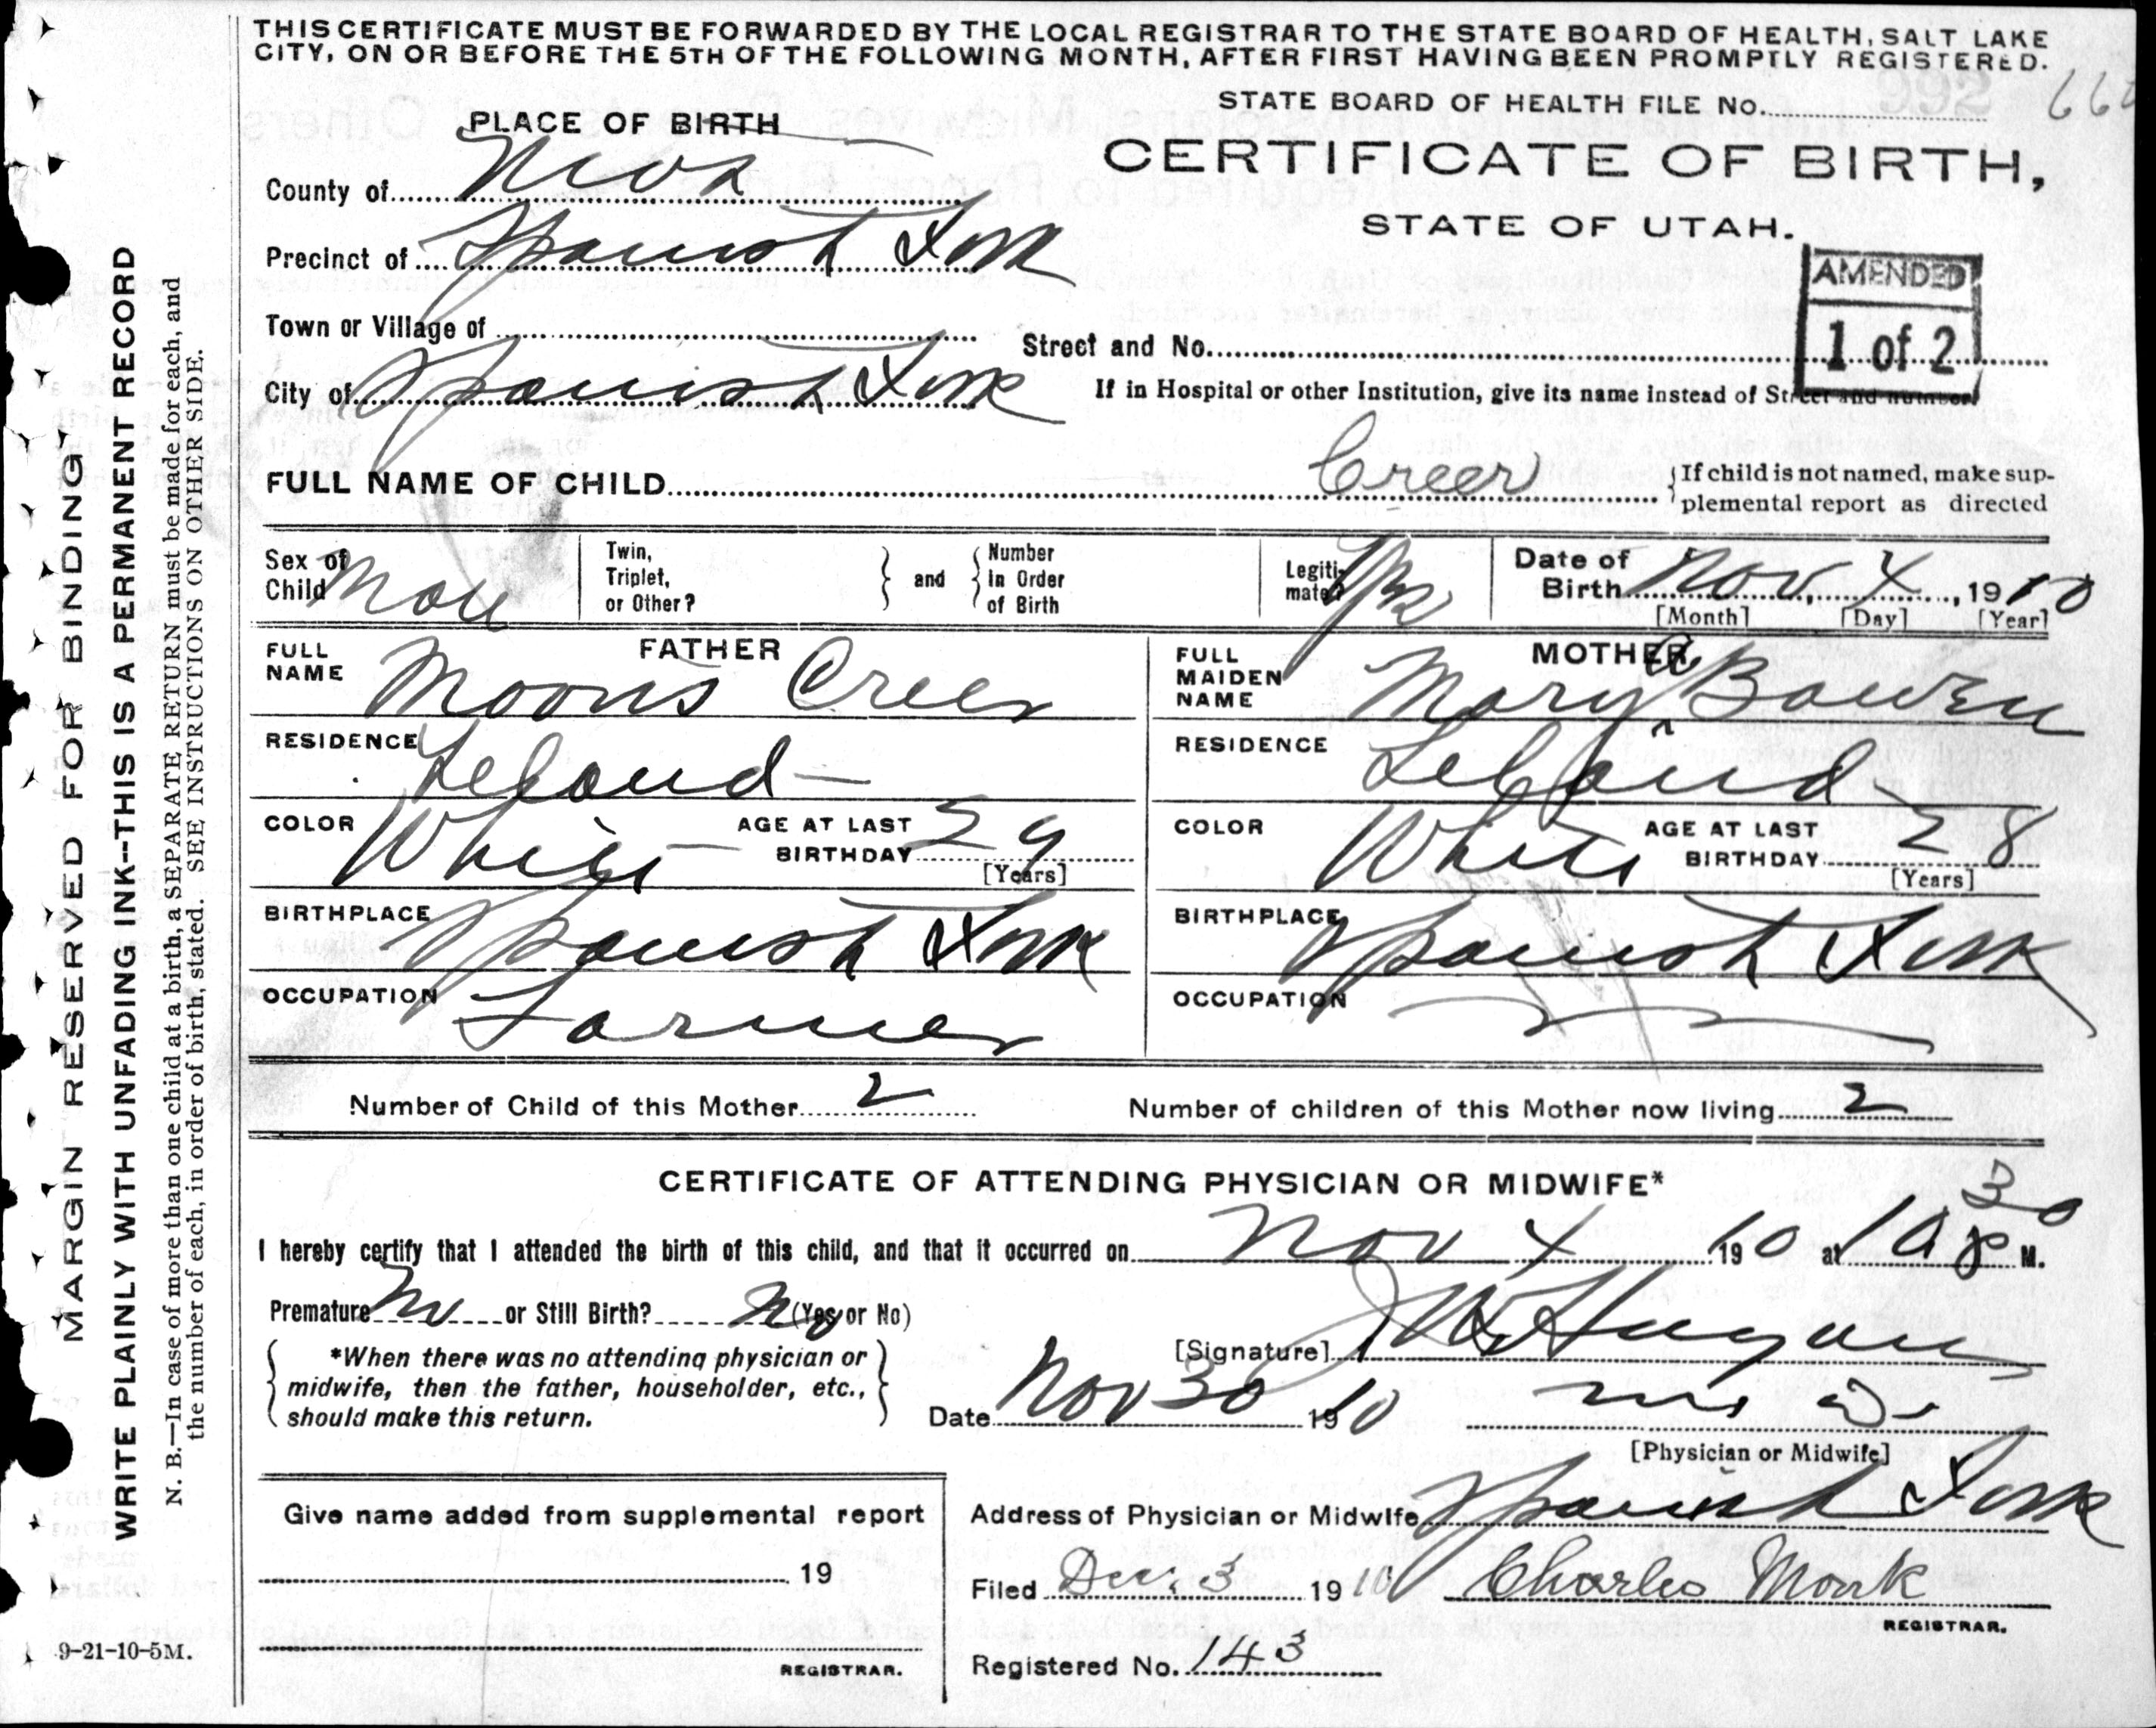 THIS CERTIFICATE MUST BE FORWARDED BY THE LOCAL REGISTRAR TO THE STATE BOARD OF HEALTH, SALT LAKE
CITY, ON OR BEFORE THE 5TH OF THE FOLLOWING MONTH, AFTER FIRST HAVING BEEN PROMPTLY REGISTERED.
STATE BOARD OF HEALTH FILE No.
PLACE OF BIRTH
CERTIFICATE OF BIRTH,
County of
STATE OF UTAH.
Precinct of Spanish Fork
AMENDED
1 of 2
Town or Village of
Street and No.
City of Spanish Fork
If in Hospital or other Institution, give its name instead of Street and number
FULL NAME OF CHILD Creer
If child is not named, make sup-
plemental report as directed
Sex of
Child Male
Twin,
Triplet,
or Other?
and
Number
in Order
of Birth
Legiti-
mate? Yes
Date of
Birth Nov, 4, 1910
[Month] [Day] [Year]
FATHER
FULL
NAME Creer
MOTHER
FULL
MAIDEN
NAME Mary A Bowen
RESIDENCE Leland
RESIDENCE Leland
COLOR White AGE AT LAST
BIRTHDAY 29
[Years]
COLOR White AGE AT LAST
BIRTHDAY 28
[Years]
BIRTHPLACE Spanish Fork
BIRTHPLACE Spanish Fork
OCCUPATION Farmer
OCCUPATION
Number of Child of this Mother 2
Number of children of this Mother now living 2
CERTIFICATE OF ATTENDING PHYSICIAN OR MIDWIFE*
I hereby certify that I attended the birth of this child, and that it occurred on Nov 4 1910 at 10 30 p M.
Premature No or Still Birth? No (Yes or No)
*When there was no attending physician or
midwife, then the father, householder, etc.,
should make this return.
[Signature]
Date Nov 30 1910
[Physician or Midwife]
Address of Physician or Midwife Spanish Fork
Give name added from supplemental report
19
REGISTRAR.
Filed Dec. 3 1910 Charles Monk
REGISTRAR.
Registered No. 143
MARGIN RESERVED FOR BINDING
WRITE PLAINLY WITH UNFADING INK--THIS IS A PERMANENT RECORD
N. B.—In case of more than one child at a birth, a SEPARATE RETURN must be made for each, and
the number of each, in order of birth, stated. SEE INSTRUCTIONS ON OTHER SIDE.
9-21-10-5M.